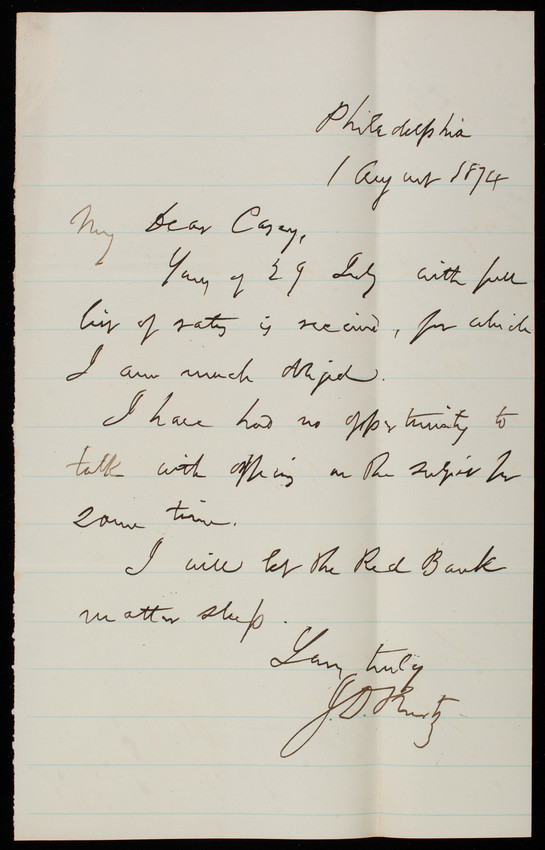 Philadelphia
1 August 1874
My Dear Casey,
Yours of 29 July with full
list of rates is received, for which
I am much obliged.
I have had no opportunity to
talk with officers on the subject for
some time.
I will let the Red Bank
matter sleep.
Yours truly
J. D. Kurtz